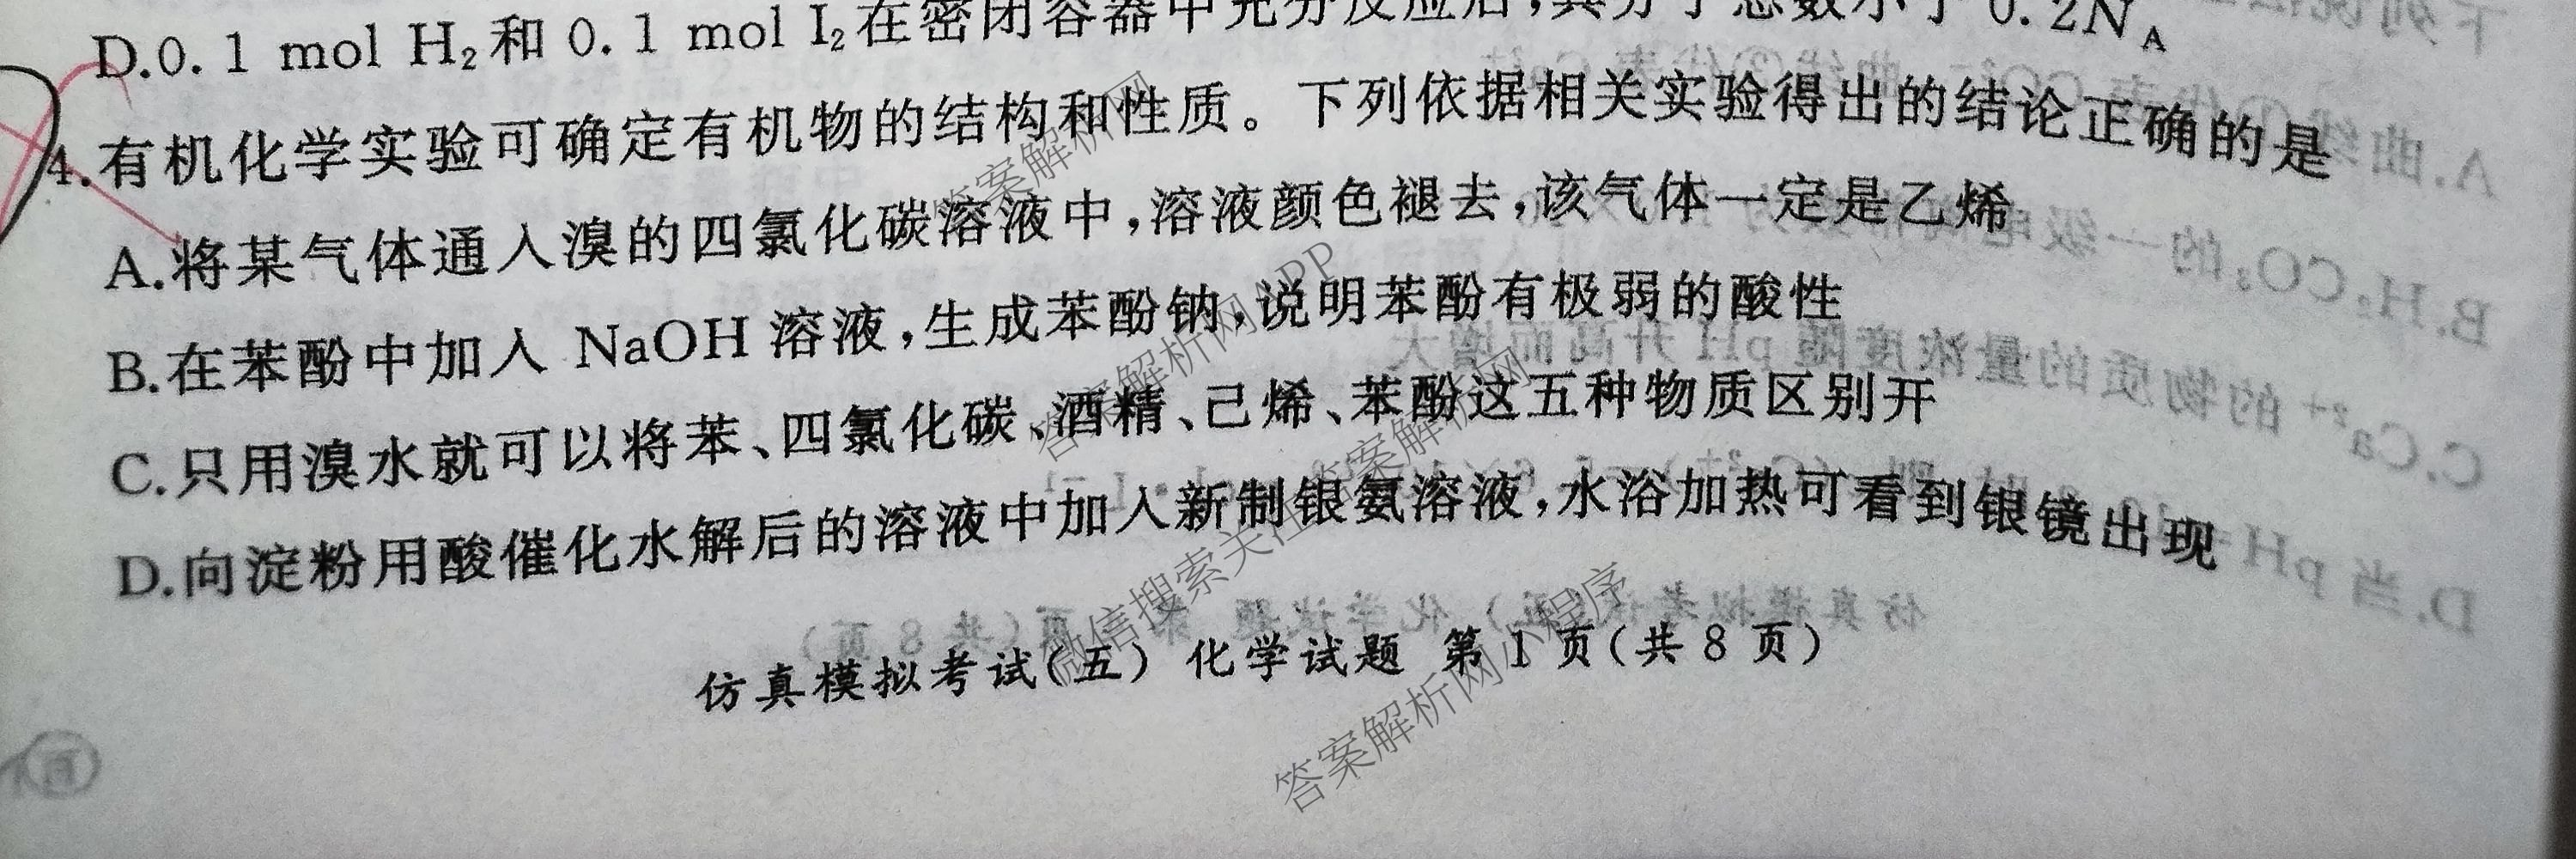 D.0.1 mol H₂和 0.1 mol I₂在密闭容器中充分反应后,其分子总数小于 0.2Nᴀ
4.有机化学实验可确定有机物的结构和性质。下列依据相关实验得出的结论正确的是
A.将某气体通入溴的四氯化碳溶液中,溶液颜色褪去,该气体一定是乙烯
B.在苯酚中加入 NaOH 溶液,生成苯酚钠,说明苯酚有极弱的酸性
C.只用溴水就可以将苯、四氯化碳、酒精、己烯、苯酚这五种物质区别开
D.向淀粉用酸催化水解后的溶液中加入新制银氨溶液,水浴加热可看到银镜出现
仿真模拟考试(五) 化学试题 第 1 页(共 8 页)
答案解析网
答案解析网APP
微信搜索关注答案解析网
答案解析网小程序